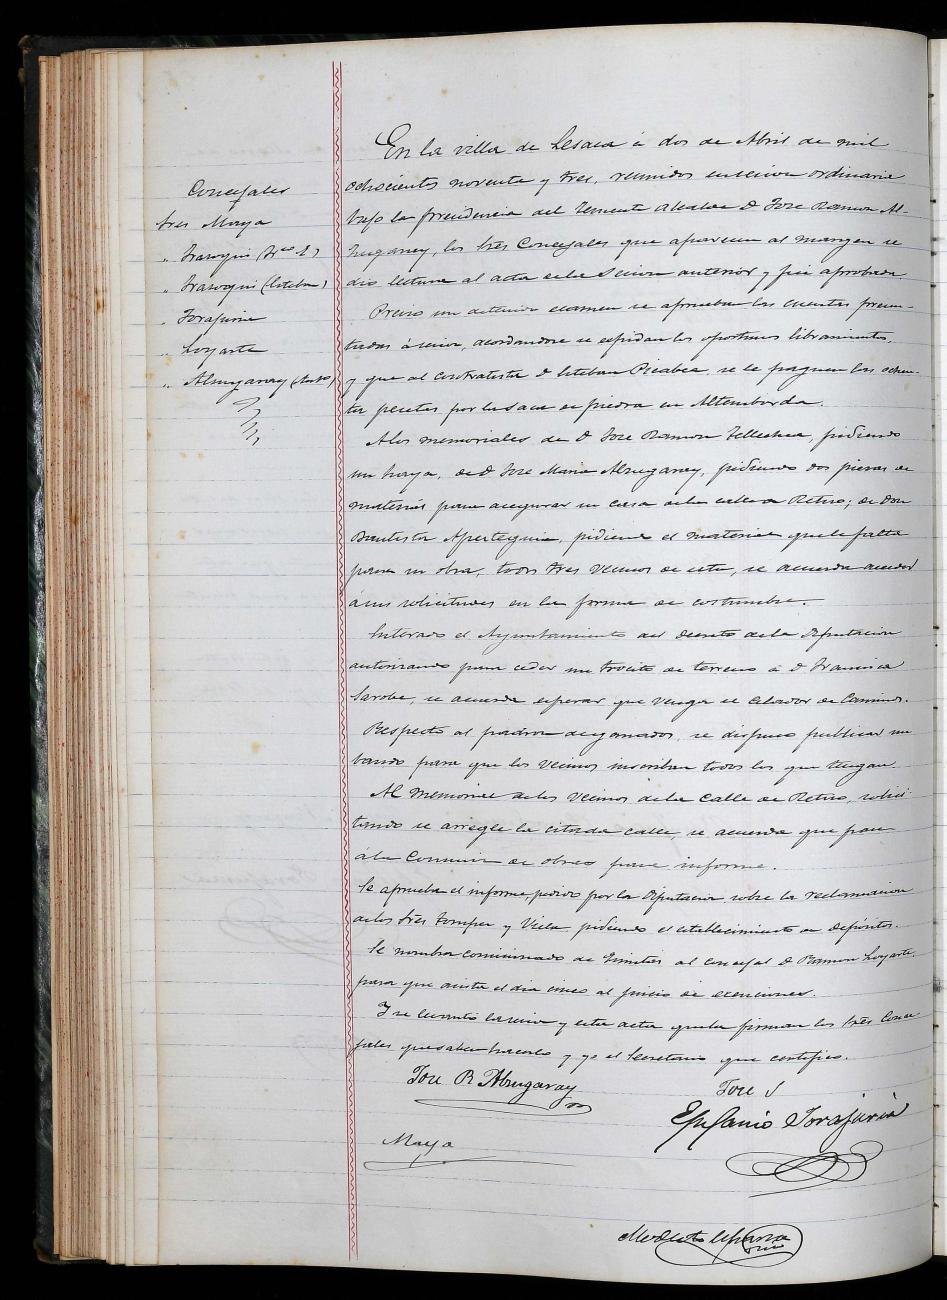 Concejales
Sres Maya
" Irazoqui
" Irazoqui (Esteban)
" Torajuria
" Loyarte
" Almugaray
En la villa de Lesaca á dos de Abril de mil
ochocientos noventa y tres, reunidos en sesion ordinaria
bajo la presidencia del Teniente Alcalde D. Jose Ramon Al-
zugaray, los Sres Concejales que aparecen al margen se
dió lectura al acta de la sesion anterior y fué aprobada
Previo un detenido examen se aprueban las cuentas presen-
tadas á sesion, acordandose se expidan los oportunos libramientos,
y que al contratista D. Esteban Picabea, se le paguen las ochen-
ta pesetas por la saca de piedra en Altemborda.
A los memoriales de D. Jose Ramon Tellechea, pidiendo
un haya, de D. Jose Maria Alzugaray, pidiendo dos piezas de
materias para asegurar su casa de la calle de Retiro; de Don
Bautista Aperteguia, pidiendo el material que le falta
para su obra, todos tres vecinos de esta, se acuerda acceder
á sus solicitudes en la forma de costumbre.
Enterado el Ayuntamiento del decreto de la Diputacion
autorizando para ceder un trocito de terreno á D. Francisca
Sarobe, se acuerda esperar que venga el Celador de Caminos.
Respecto al padron de ganados, se dispuso publicar un
bando para que los vecinos inscriban todos los que tengan
Al memorial de los vecinos de la Calle de Retiro, solici-
tando se arregle la citada calle, se acuerda que pase
á la Comision de obras para informe.
Se aprueba el informe, pedido por la Diputacion sobre la reclamacion
de los Sres y Viela, pidiendo el establecimiento de Depósitos.
Se nombra comisionado de Quintas al concejal D. Ramon Loyarte,
para que asista el dia cinco al juicio de exenciones.
Y se levanta la sesion y esta acta que la firman los Sres Conce-
jales que saben hacerlo y yo el Secretario que certifico.
Jose R. Alzugaray
Jose
Epifanio Torajuria
Maya
Modesto